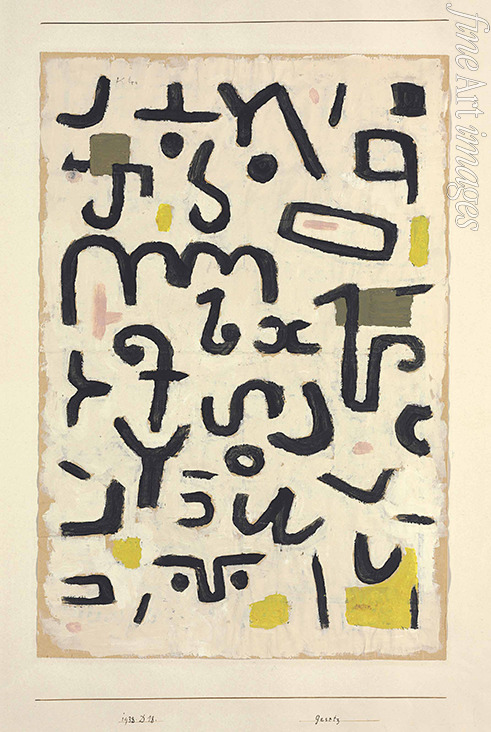 fineArtimages
1938. D. 18. Gesetz